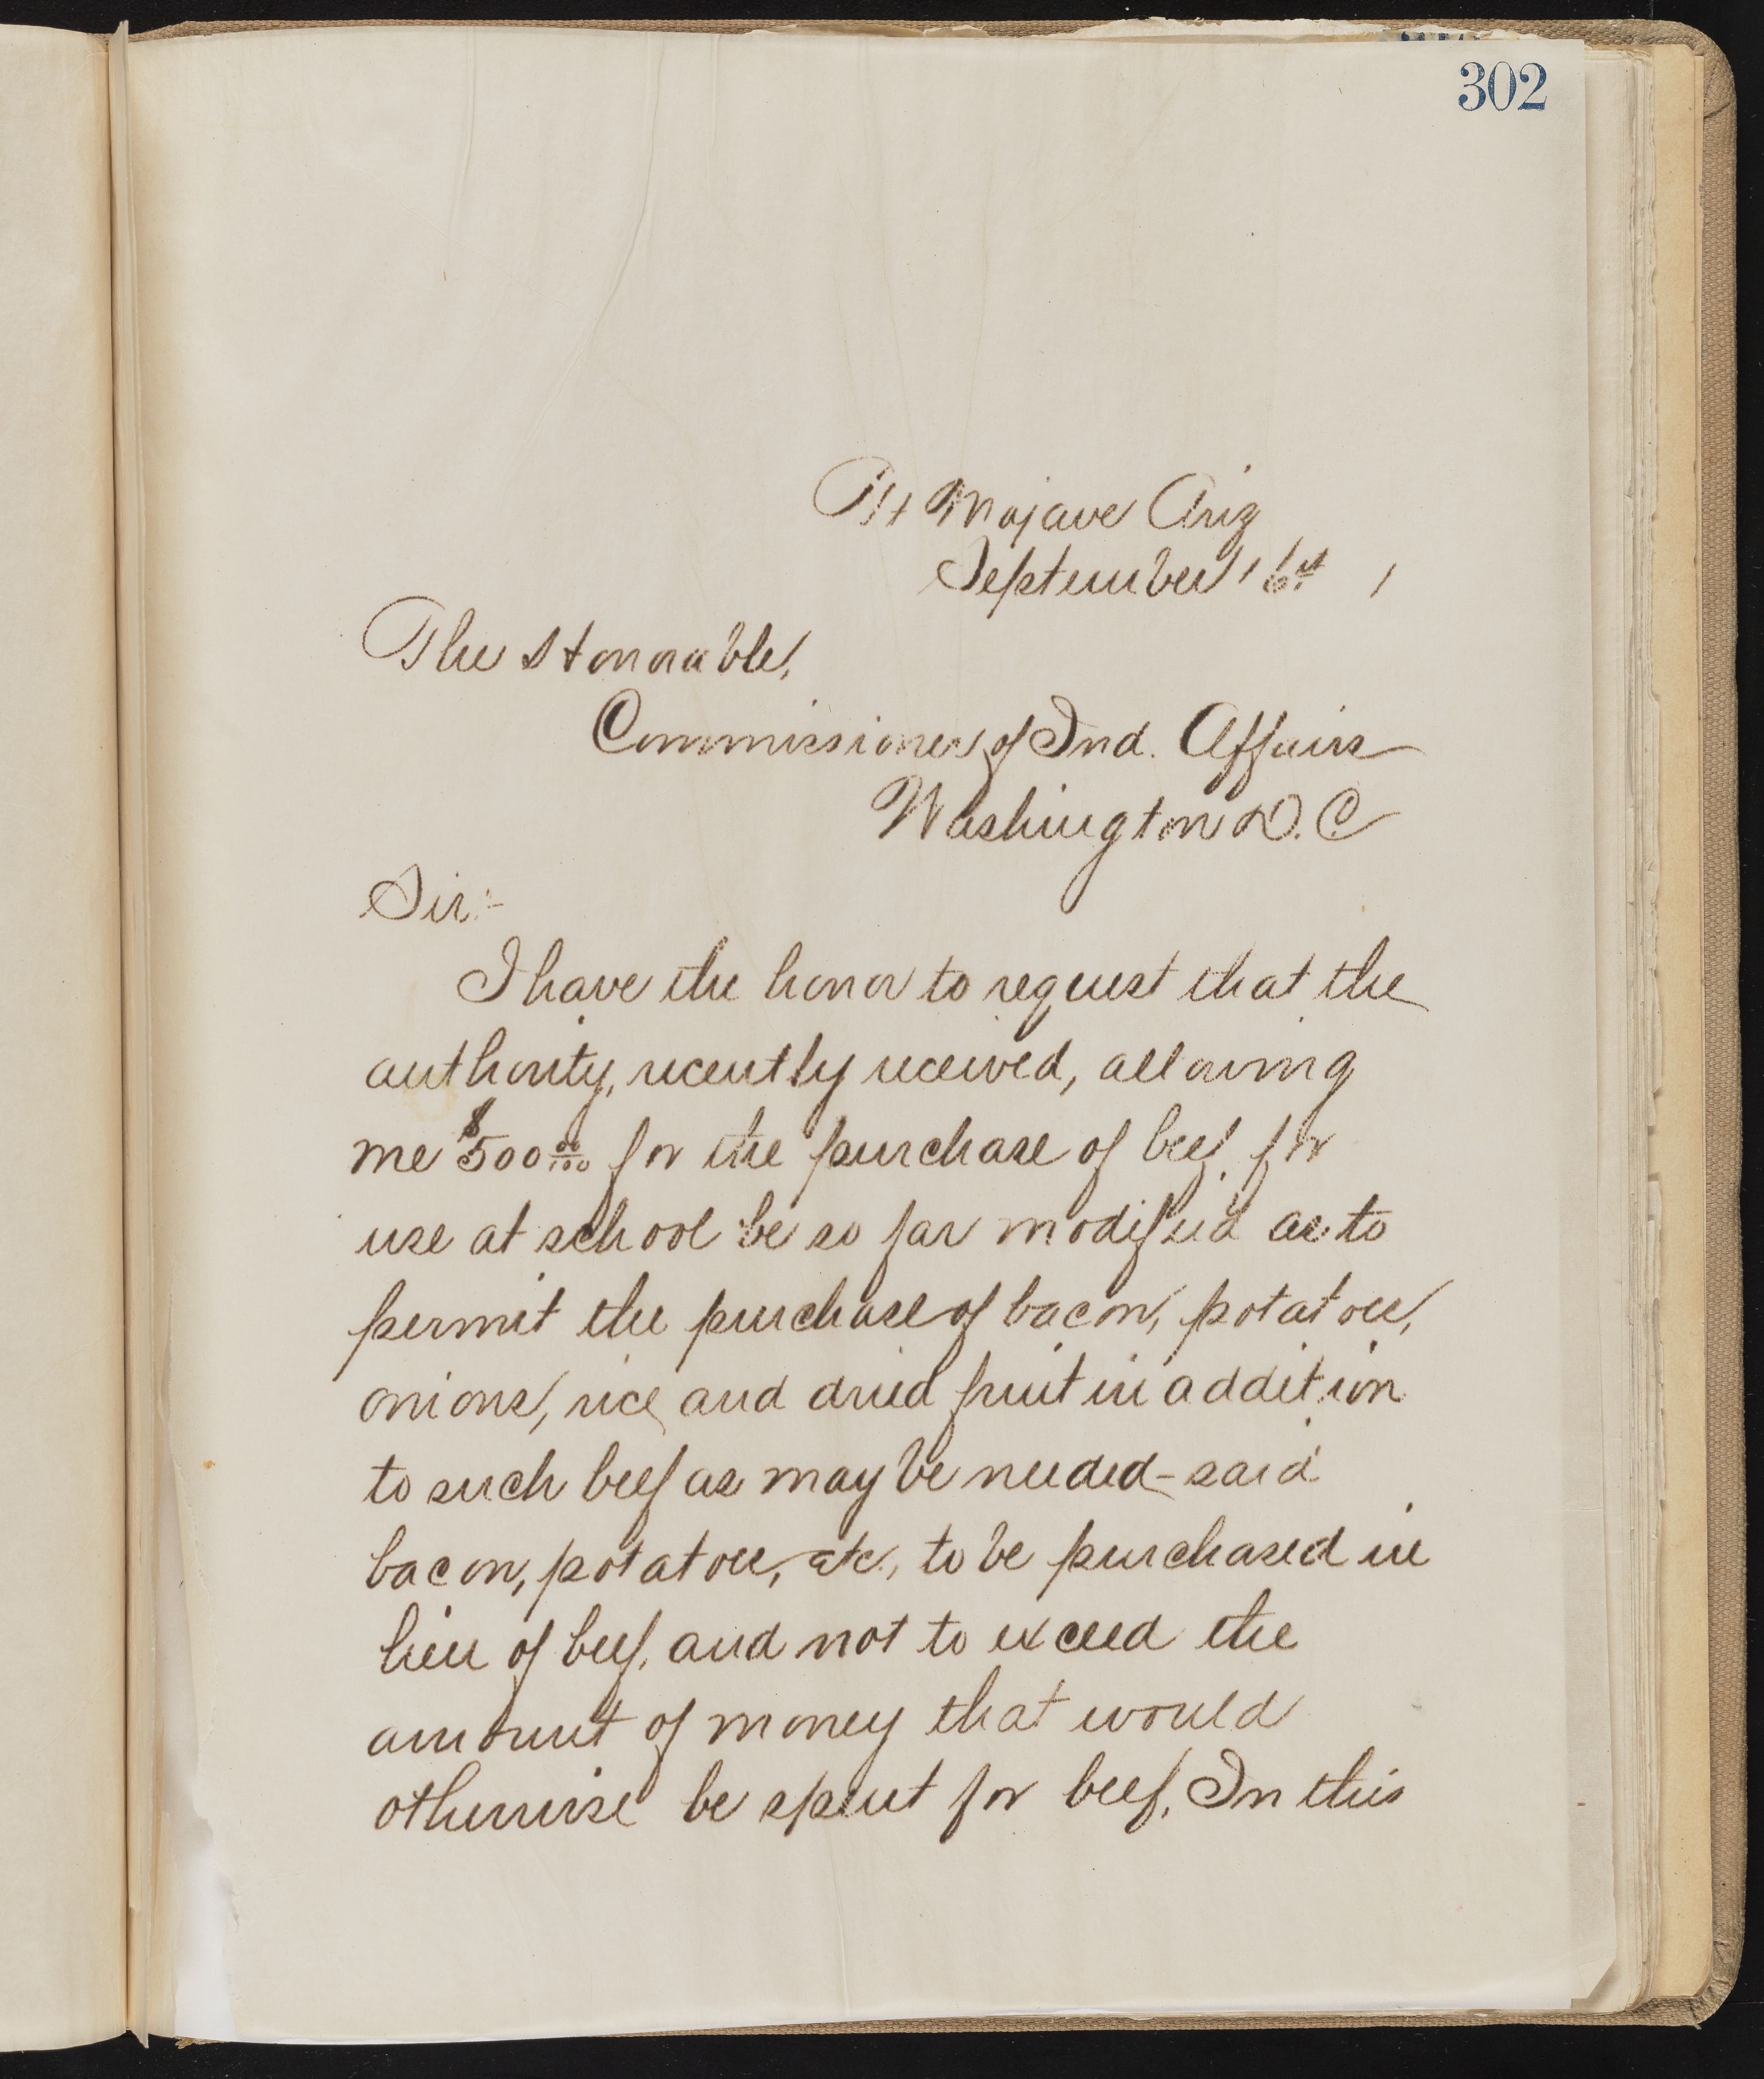 302
Ft Mojave Ariz
September 16th
The Honorable,
Commissioner of Ind. Affairs
Washington D.C
Sir:-
I have the honor to request that the
authority, recently received, allowing
me $500 00/100 for the purchase of beef for
use at school be so far modified as to
permit the purchase of bacon, potatoes,
onions, rice and dried fruit in addition
to such beef as may be needed - said
bacon, potatoes, etc., to be purchased in
lieu of beef, and not to exceed the
amount of money that would
otherwise be spent for beef. In this